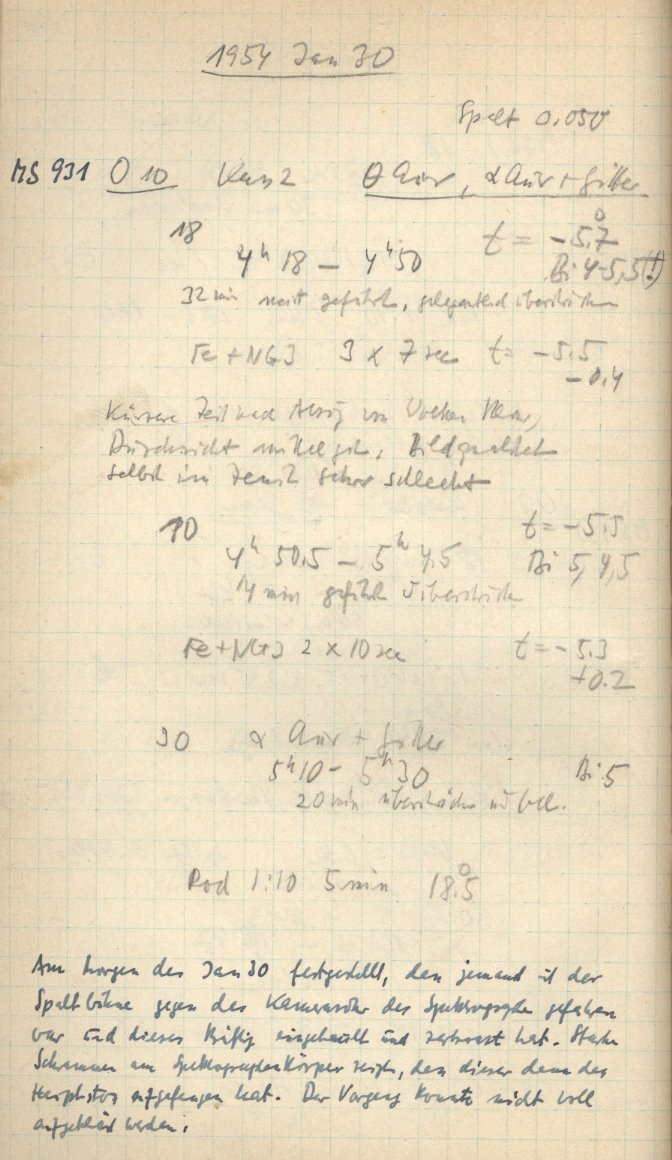 1954 Jan 30
Spalt 0.050
MS 931 O 10 Kam 2 θ Aur, α Aur + Gitter
18 t = -5.°7
4h 18 - 4h 50 Bi 4-5,5(!)
32 min meist geführt, gelegentlich überstrichen
Fe + NG3 3 x 7 sec t = -5.5
-0.4
Kürzere Zeit nach Abzug von Wolken klar,
Durchsicht mittelgut, Bildqualität
selbst im Zenit sehr schlecht
10 t = -5.5
4h 50.5 - 5h 4.5 Bi 5, 4,5
14 min geführt überstrichen
Fe + NG3 2 x 10 sec t = -5.3
+0.2
30 α Aur + Gitter
5h 10 - 5h 30 Bi 5
20 min überstrichen
Rod 1:10 5 min 18.°5
Am Morgen des Jan 30 festgestellt, dass jemand mit der
Spaltbühne gegen das Kamerarohr des Spektrographen gefahren
war und dieses kräftig eingebeult und hat. Starke
Schrammen am Spektrographenkörper zeigen, dass dieser dann den
aufgefangen hat. Der Vorgang konnte nicht voll
aufgeklärt werden.